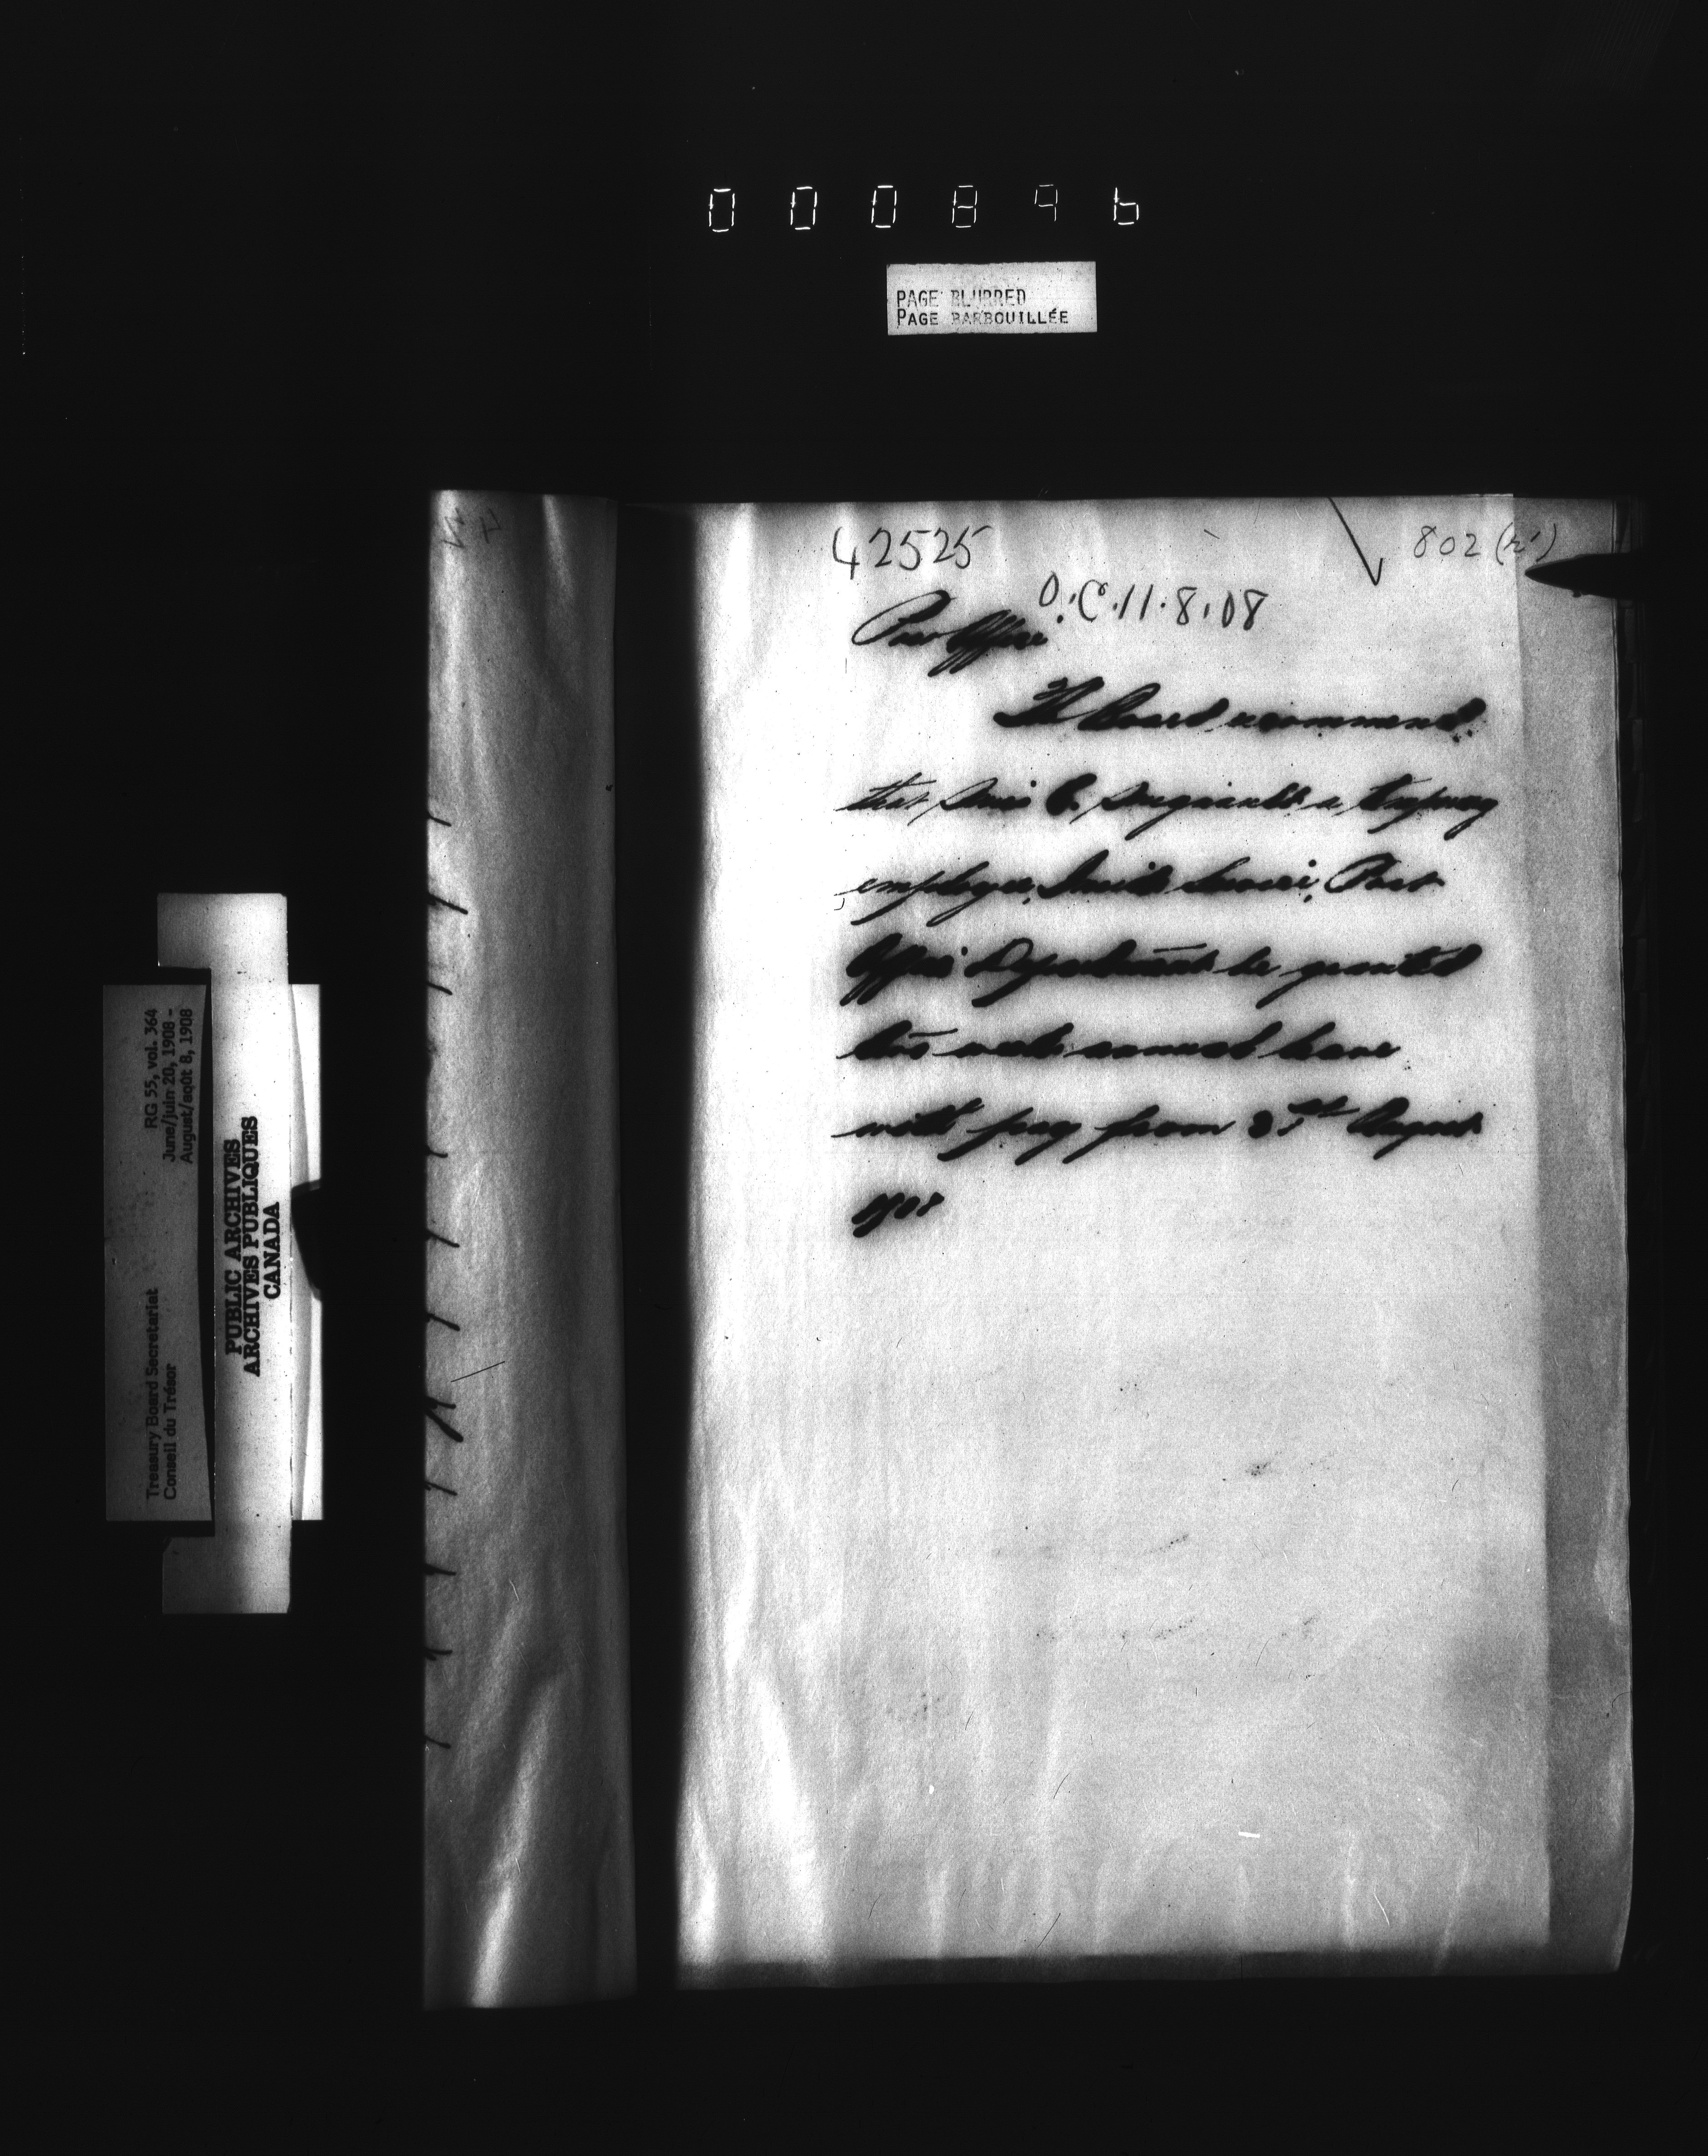 000896
PAGE BLURRED
PAGE BARBOUILLÉE
42525
802 (r')
O.C. 11.8.08
Post Office
The Board recommend
that Miss C. a temporary
employee, Inside Service, Post
Office Department be granted
two weeks annual leave
with pay from 31st August
1908
Treasury Board Secretariat RG 55, vol. 364
Conseil du Trésor June/juin 20, 1908 -
August/août 8, 1908
PUBLIC ARCHIVES
ARCHIVES PUBLIQUES
CANADA